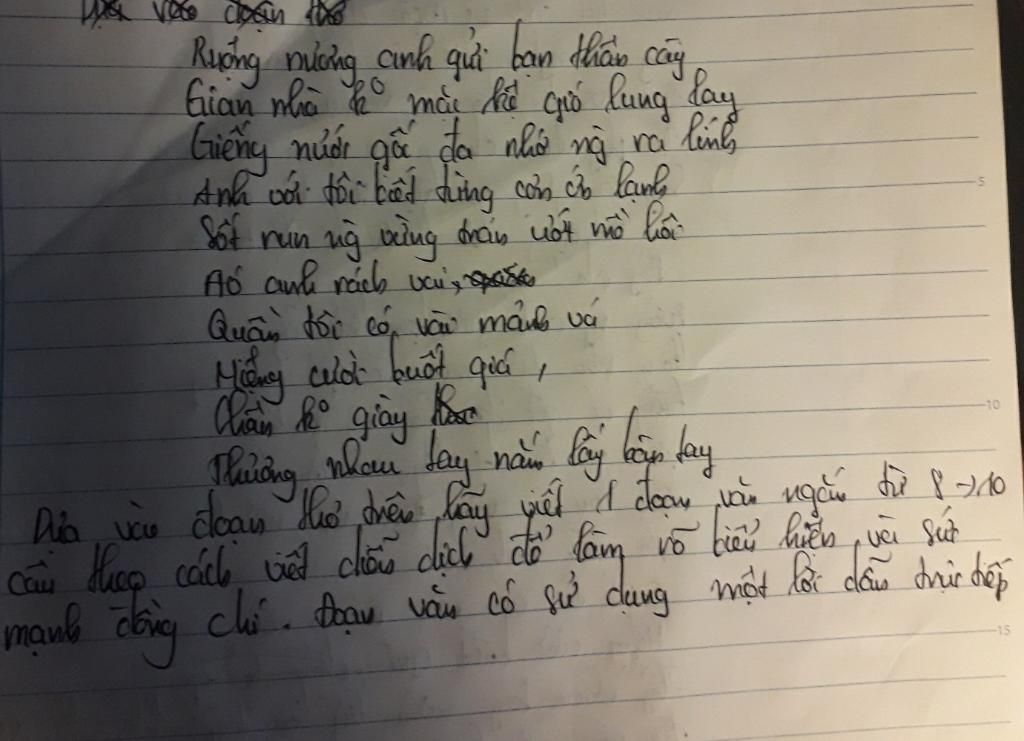 Dựa vào đoạn thơ
Ruộng nương anh gửi bạn thân cày
Gian nhà ko mặc kệ gió lung lay
Giếng nước gốc đa nhớ ng ra lính
Anh với tôi biết từng cơn ớn lạnh
Sốt run ng vừng trán ướt mồ hôi
Aó anh rách vai,
Quần tôi có vài mảnh vá
Miệng cười buốt giá,
Chân ko giày
Thương nhau tay nắm lấy bàn tay
Dựa vào đoạn thơ trên hãy viết 1 đoạn văn ngắn từ 8 → 10
câu theo cách viết diễn dịch để làm rõ biểu hiện và sức
mạnh đồng chí. Đoạn văn có sử dụng một lời dẫn trực tiếp
5
10
15